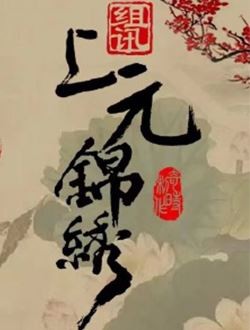 组讯
上元錦绣